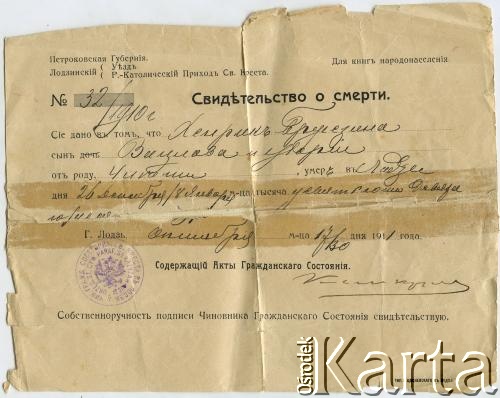 Петроковская Губернія.
Лодзинскій ( Уѣздъ
( Р.-Католическій Приходъ Св. Креста.
Для книгъ народонаселенія
№ 32/1910 г
Свидѣтельство о смерти.
Сіе дано въ томъ, что Хенрикъ
сынъ дочь Вацлава и Маріи
отъ роду, умеръ въ Лодзи
дня 26 Декабря/8 Января м-ца тысяча девятьсотъ
Г. Лодзь. Октября м-ца 17/30 дня 1911 года.
Содержащій Акты Гражданскаго Состоянія.
Собственноручность подписи Чиновника Гражданскаго Состоянія свидѣтельствую.
Ośrodek
Karta